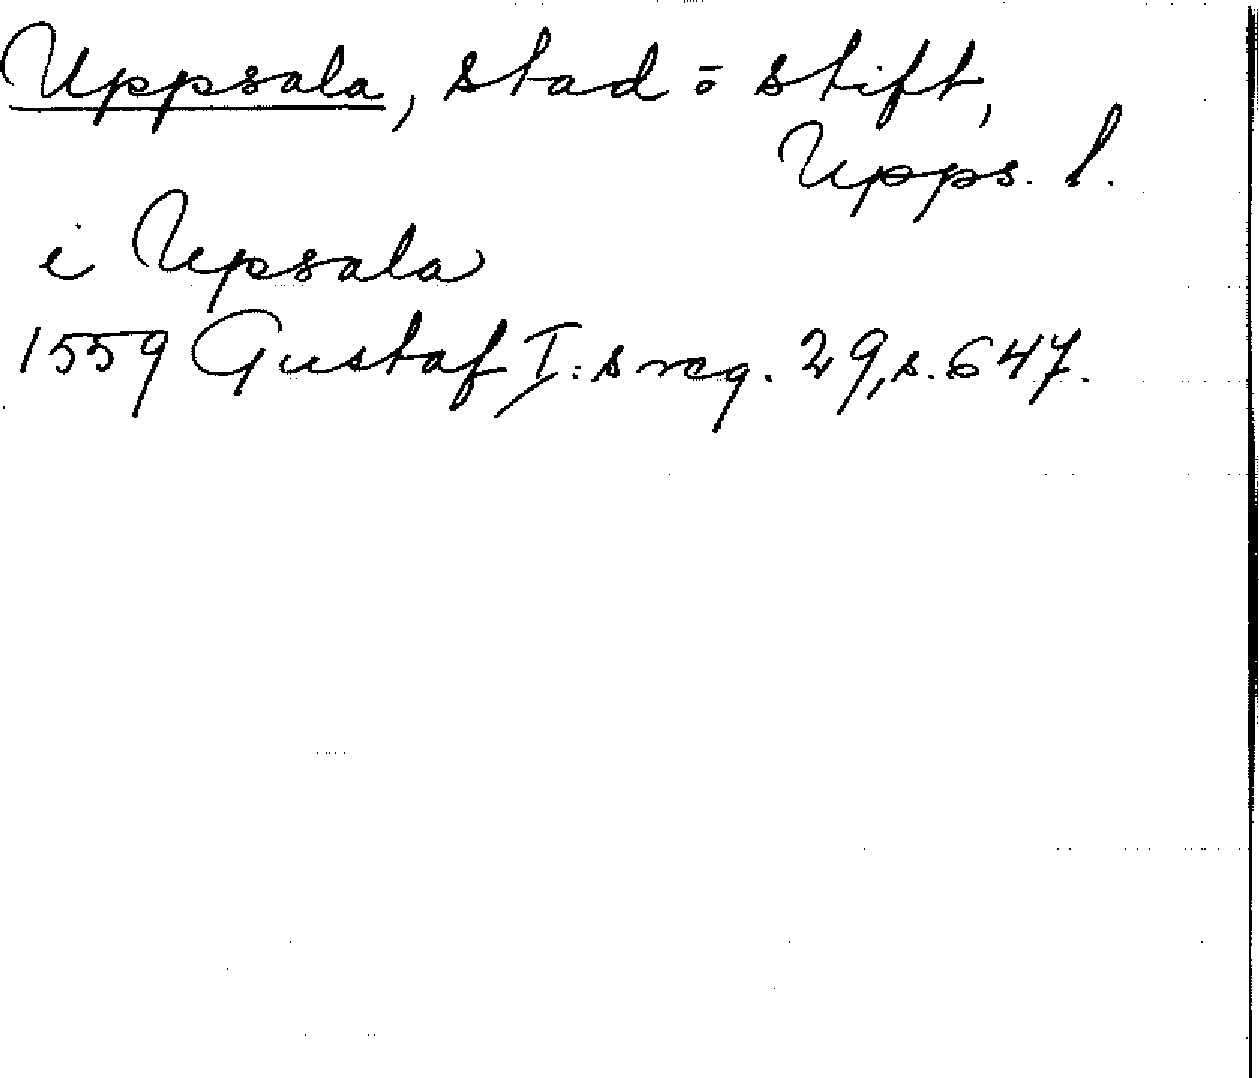 Uppsala, stad o̅ stift,
Upps. l.
i Upsala
1559 Gustaf I:s reg. 29, s. 647.